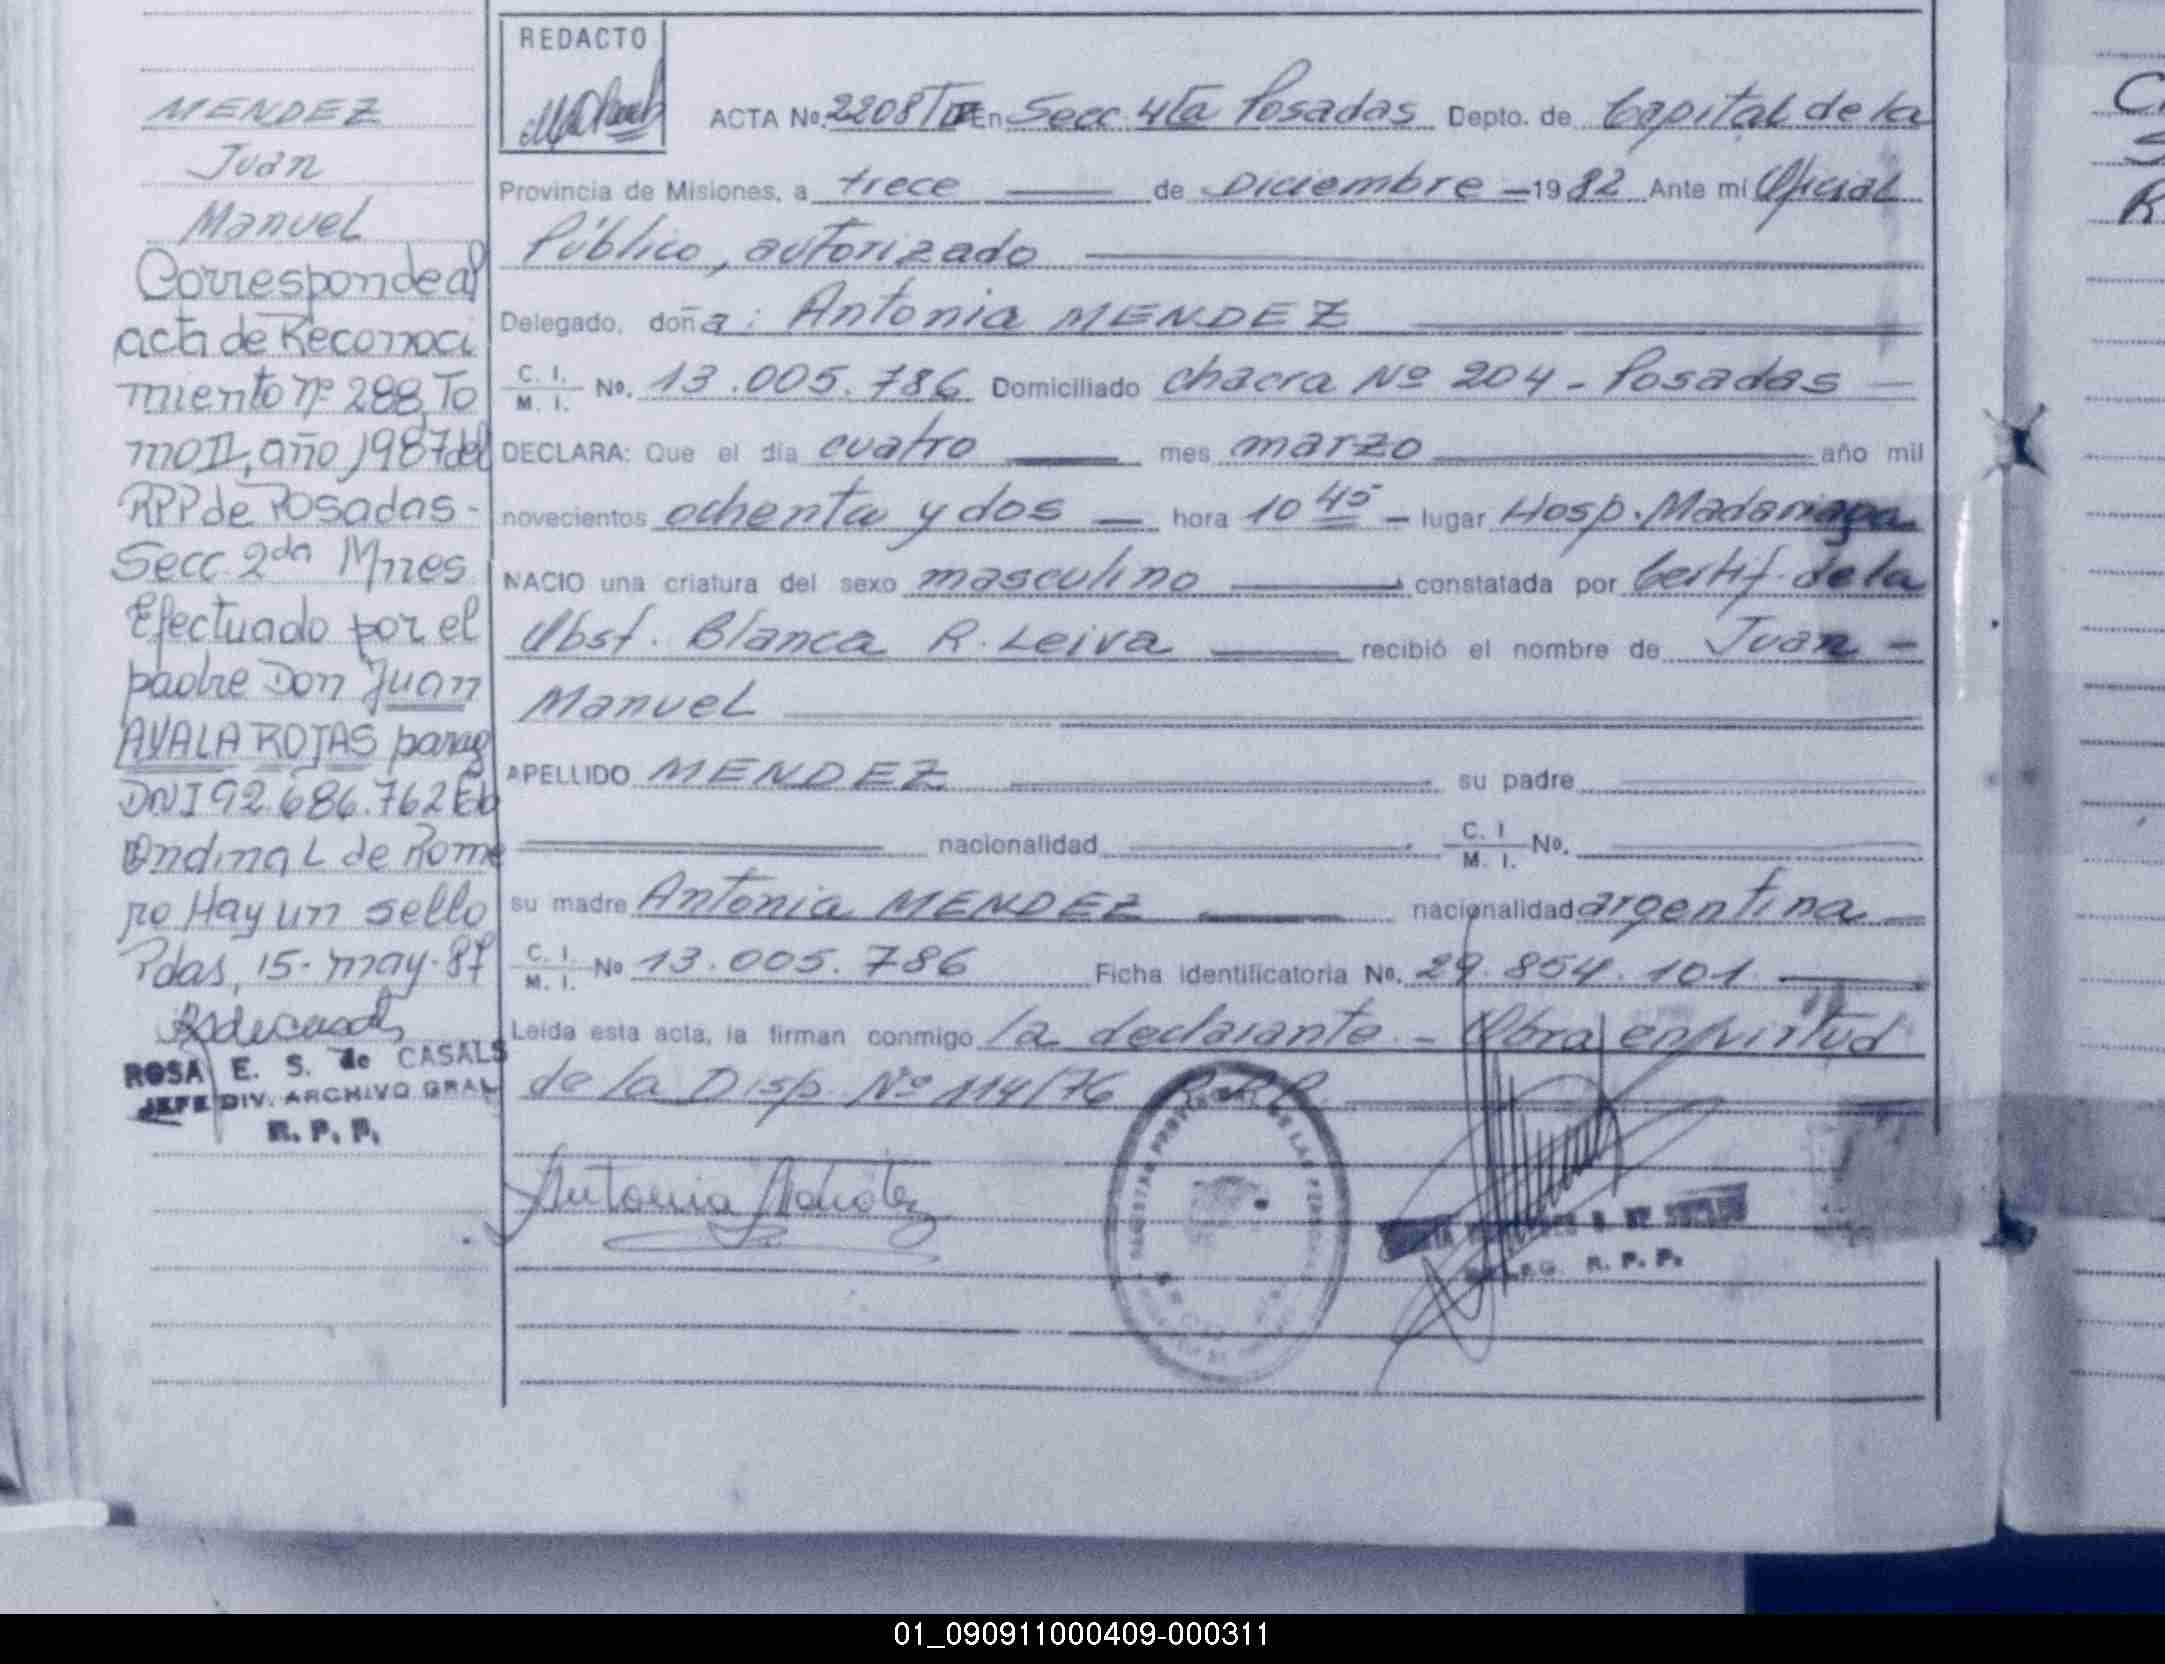 MENDEZ
Juan
Manuel
Corresponde al
acta de Reconoci
miento nº 288, To
mo II, año 1987 del
RPP de Posadas -
Secc. 2da Mnes
Efectuado por el
padre Don Juan
AYALA ROJAS parag
DNI 92.686.762 Fdo
Ondina L de Rome
ro Hay un sello
Pdas, 15-may-87
ROSA E. S. de CASALS
JEFE DIV. ARCHIVO GRAL
R. P. P.
REDACTO
ACTA No. 2208 En Secc 4ta Posadas Depto. de Capital de la
Provincia de Misiones, a trece de Diciembre 1982 Ante mí Oficial
Público, autorizado
Delegado, doña: Antonia MENDEZ
C. I. M. I. No. 13.005.786 Domiciliado chacra Nº 204 - Posadas
DECLARA: Que el día cuatro mes marzo año mil
novecientos ochenta y dos hora 10 45 - lugar Hosp. Madariaga
NACIO una criatura del sexo masculino constatada por Certif. de la
Obst. Blanca R. Leiva recibió el nombre de Juan -
Manuel
APELLIDO MENDEZ su padre
nacionalidad C. I. M. I. No.
su madre Antonia MENDEZ nacionalidad argentina
C. I. M. I. No 13.005.786 Ficha identificatoria No. 29.854.101
Leída esta acta, la firman conmigo la declarante. - Obra en virtud
de la Disp. Nº 114/76 R.P.P.
DELEG. R. P. P.
01_090911000409-000311